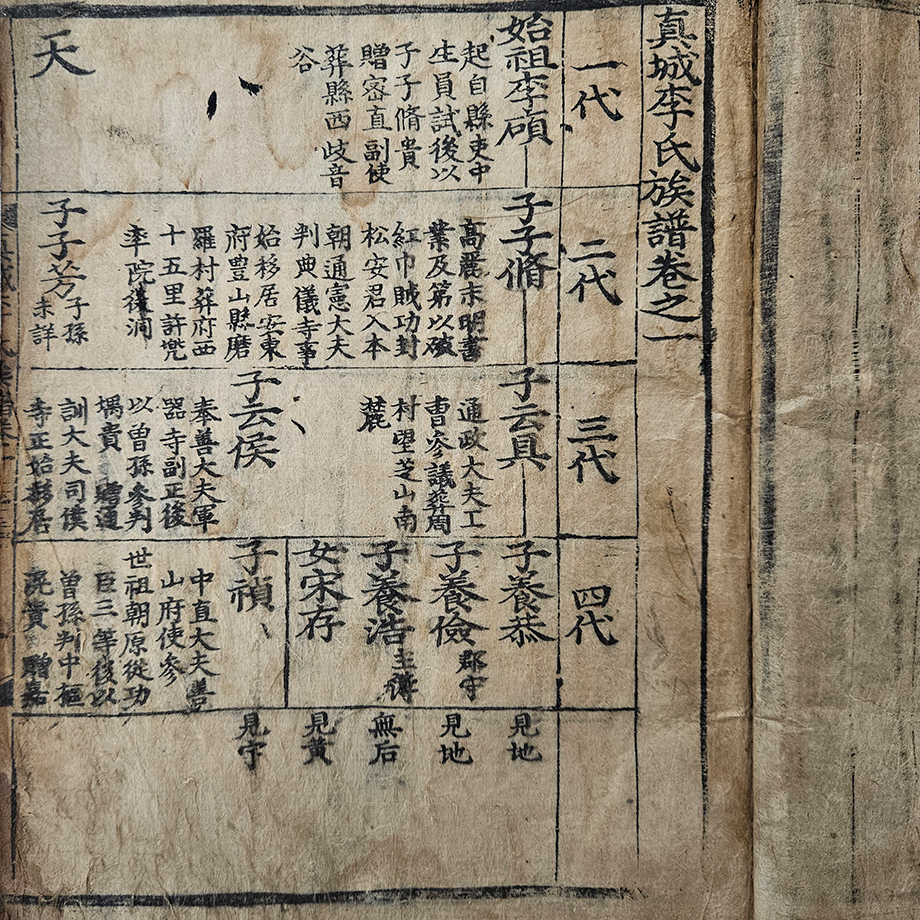 真城李氏族譜卷之一
一代
始祖李碩
起自縣吏中
生員試後以
子子脩貴
贈密直副使
葬縣西岐音
谷
天
二代
子子脩
高麗末明書
業及第以破
紅巾賊功封
松安君入本
朝通憲大夫
判典儀寺事
始移居安東
府豊山縣磨
羅村葬府西
十五里許兠
率院後洞
子子芳
子孫
未詳
三代
子云具
通政大夫工
曹參議葬周
村望芝山南
麓
子云侯
奉善大夫軍
器寺副正後
以曽孫參判
堣貴 贈通
訓大夫司僕
寺正始移居
四代
子養恭
子養儉
郡守
子養浩
主簿
女宋存
子禎
中直大夫善
山府使參
世祖朝原從功
臣三等後以
曽孫判中樞
滉貴 贈嘉
見地
見地
無后
見黄
見宇